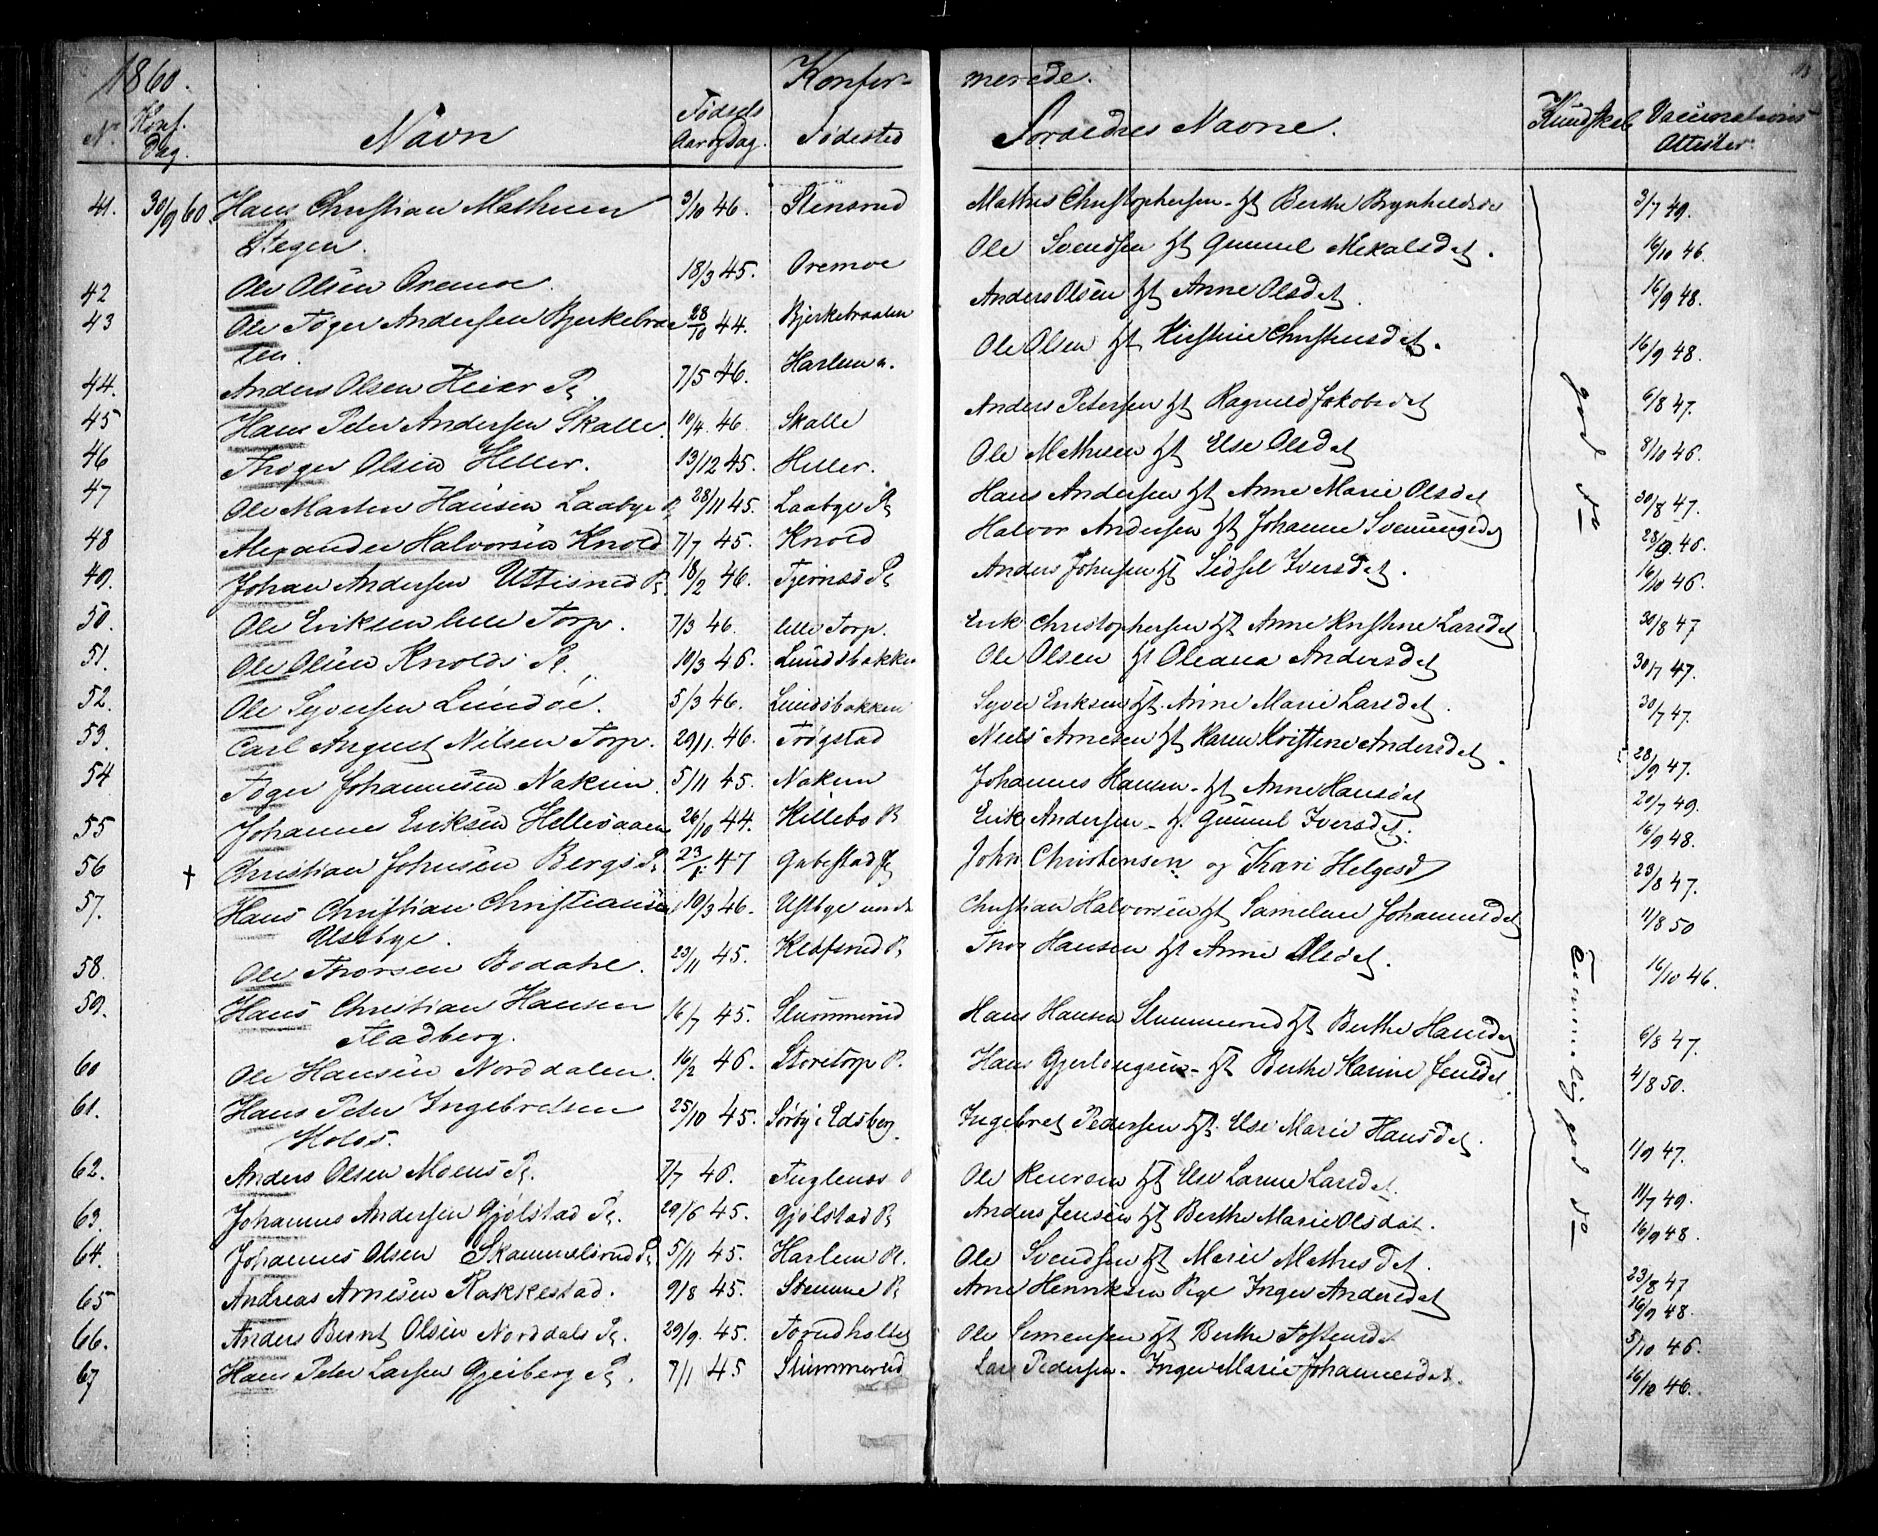 1860. Konfir- merede.
No Konf. Dag. Navn Fødsels Aar og Dag. Fødested Forældres Navne. Kundskab Vaccinations Attester.
41. 30/9 60. Hans Christian Mathisen 3/10 46. Stensrud Mathis Christophersen - Berthe Brynhildsdr 3/7 49.
Stegen.
42 Ole Olsen Oremoe. 18/3 45. Oremoe Ole Svendsen Gunnil Mikalsdt. 16/10 46.
43 Ole Tøger Andersen Bjerkebraa- 28/10 44. Bjerkebraaten Anders Olsen Anne Olsdt. 16/9 48.
ten.
44. Anders Olsen Heier 7/5 46. Harlem Ole Olsen Kirstine Christensdt. 16/9 48.
45 Hans Peter Andersen Skalle. 10/4 46. Skalle Anders Petersen Ragnild Jakobsdt 6/8 47. god do
46 Thøger Olsen Heller. 13/12 45. Heller. Ole Mathisen Else Olsdt 8/10 46.
47 Ole Marten Hansen Laabye 28/11 45. Laabye Hans Andersen Anne Marie Olsdt 30/8 47.
48 Alexander Halvorsen Knold 7/7 45. Knold Halvor Andersen Johanne 28/9 46.
49. Johan Andersen 18/2 46. Tjernæs Anders Johnsen Sidsel Iversdt. 16/10 46.
50. Ole Eriksen lille Torp. 7/3 46. lille Torp. Erik Christophersen Anne Kristine Larsdt 30/8 47
51. Ole Olsen Knolds 10/3 46. Lundsbakken Ole Olsen Oleana Andersdt 30/7 47.
52. Ole Syversen Lundøe. 5/3 46. Lundsbakken Syver Eriksen Anne Marie Larsdt. 30/7 47.
53. Carl August Nilsen Torp. 29/1 46. Trøgstad Niels Arnesen Karen Kristine Andersdt. 28/9 47.
54 Tøger Johannesen Nakim 5/11 45. Nakim Johannes Hansen - Anne Hansdt 20/7 49.
55 Johannes Eriksen Hellesaaen 26/10 44. Killebo Erik Andersen - Gunnil Iversdt. 16/9 48.
56 † Christian Johnsen Bergs 23/1 47 John Christensen og Kari Helgesd 23/8 47.
57. Hans Christian Christiansen 10/3 46. Ustbye Christian Halvorsen Johannesdt 11/8 50
Ustbye.
58. Ole Thorsen Bodahl. 23/11 45. Thor Hansen Anne Olsdt. 16/10 46.
59. Hans Christian Hansen 16/7 45. Slummerud Hans Hansen Slummerud Berthe Hansdt 6/8 47. Temmelig god do
Fladberg.
60 Ole Hansen Norddalen. 16/2 46. Storetorp Hans - Berthe Karine Jensdt. 4/8 50.
61. Hans Peter Ingebretsen 25/10 45. Sørby i Edsberg Ingebret Pedersen Else Marie Hansdt. 1/9 47.
Holøs.
62. Anders Olsen Moens 7/7 46. Fuglenæs Ole Else Larsdt. 11/7 49.
63. Johannes Andersen Gjølstad 29/6 45. Gjølstad Anders Jensen Berthe Marie Olsdat. 16/9 48.
64. Johannes Olsen Skammelsrud 5/11 45. Harlem Ole Svendsen Marie Mathisdt. 23/8 47
65 Andreas Arnesen Rakkestad. 9/8 45. Stemme Arne Henriksen Pige Inger Andersdt 16/9 48.
66. Anders Bernt Olsen Norddals 29/9. 45. Torudholtet Ole Simensen Berthe Tostensdt 5/10 46.
67 Hans Peter Larsen Gjeiberg 7/1 45 Slummerud Lars Pedersen. Inger Marie Johannesdt. 16/10 46.